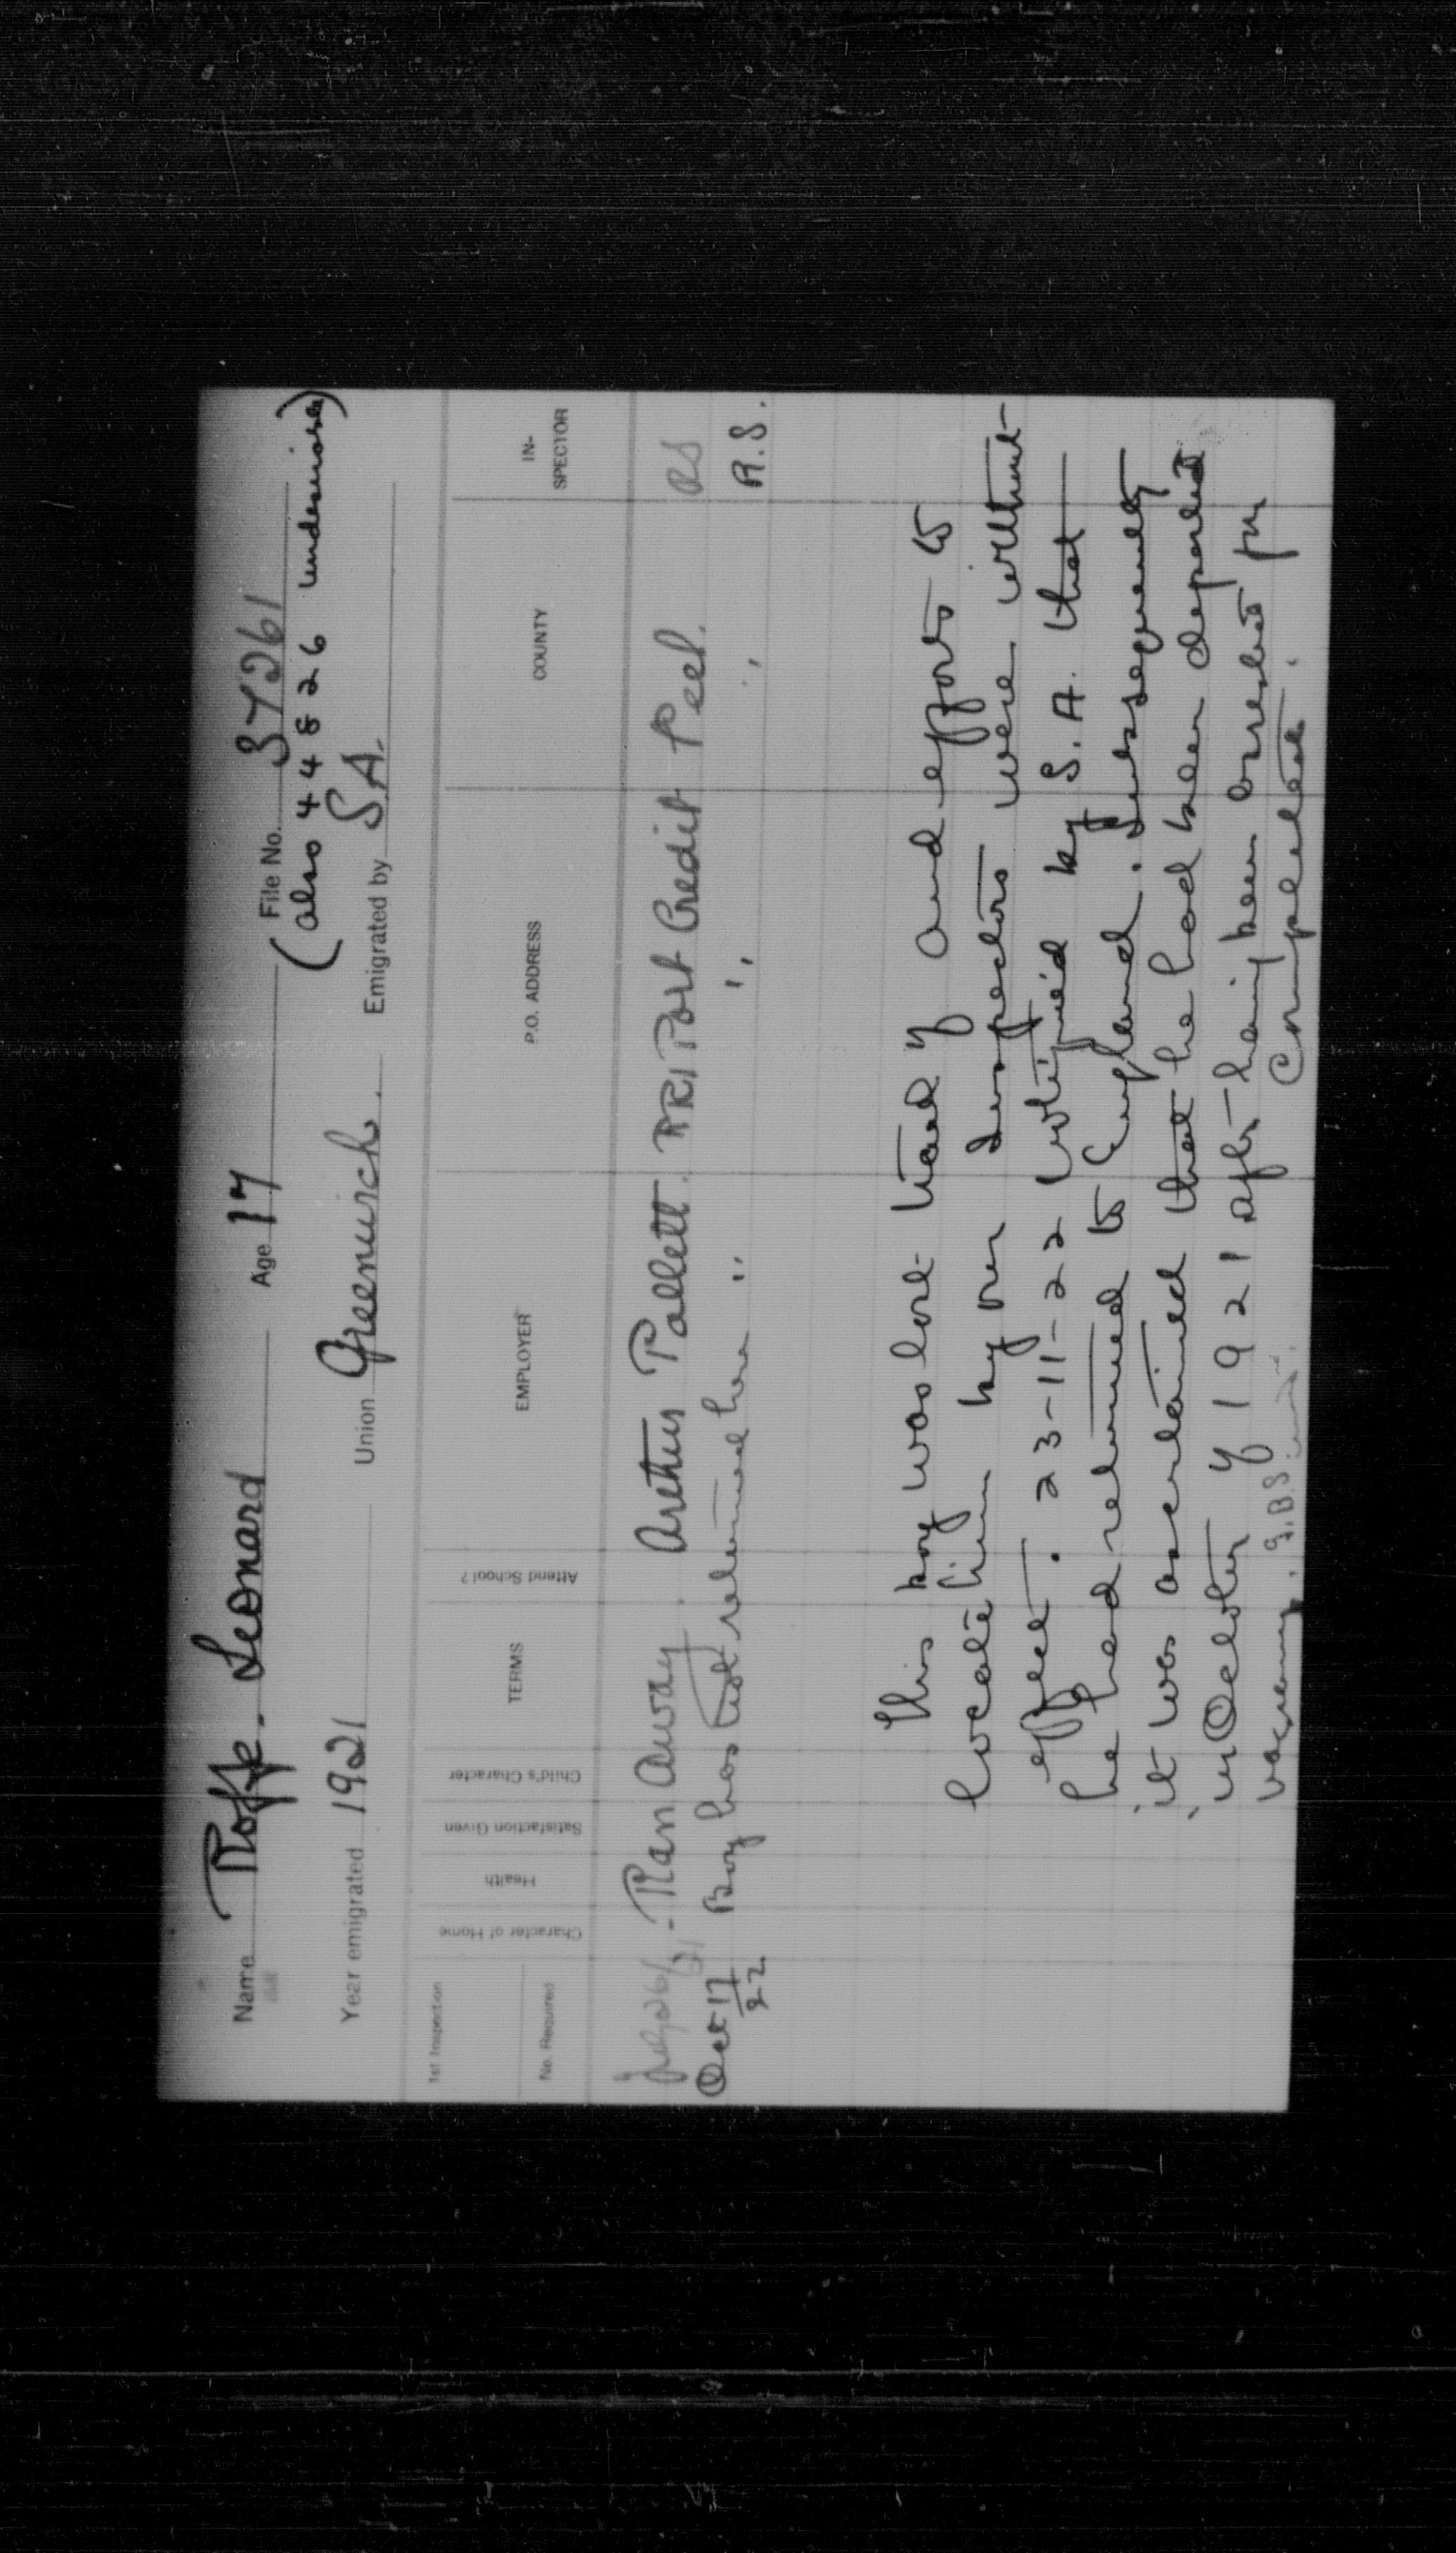 Name Roff. Leonard Age 17 File No. 37261
(also 44826 undesirable)
Year emigrated 1921 Union Greenwich. Emigrated by S.A.
1st Inspection
No. Required
Character of Home
Health
Satisfaction Given
Child's Character
TERMS
Attend School?
EMPLOYER
P.O. ADDRESS
COUNTY
IN-
SPECTOR
21 - Ran Away. Arethus Pallett. RR1 Port Credit Peel. RS
Oct 17/22 Boy has not returned here " " " R.S.
This boy was lost track of and efforts to
locate him by our Inspectors were without
effect. 23-11-22 Notified by S.A. that
he had returned to England. Subsequently
it was ascertained that he had been deported
in October of 1921 after having been arrested for
vagrancy. G.B.S. Completed.